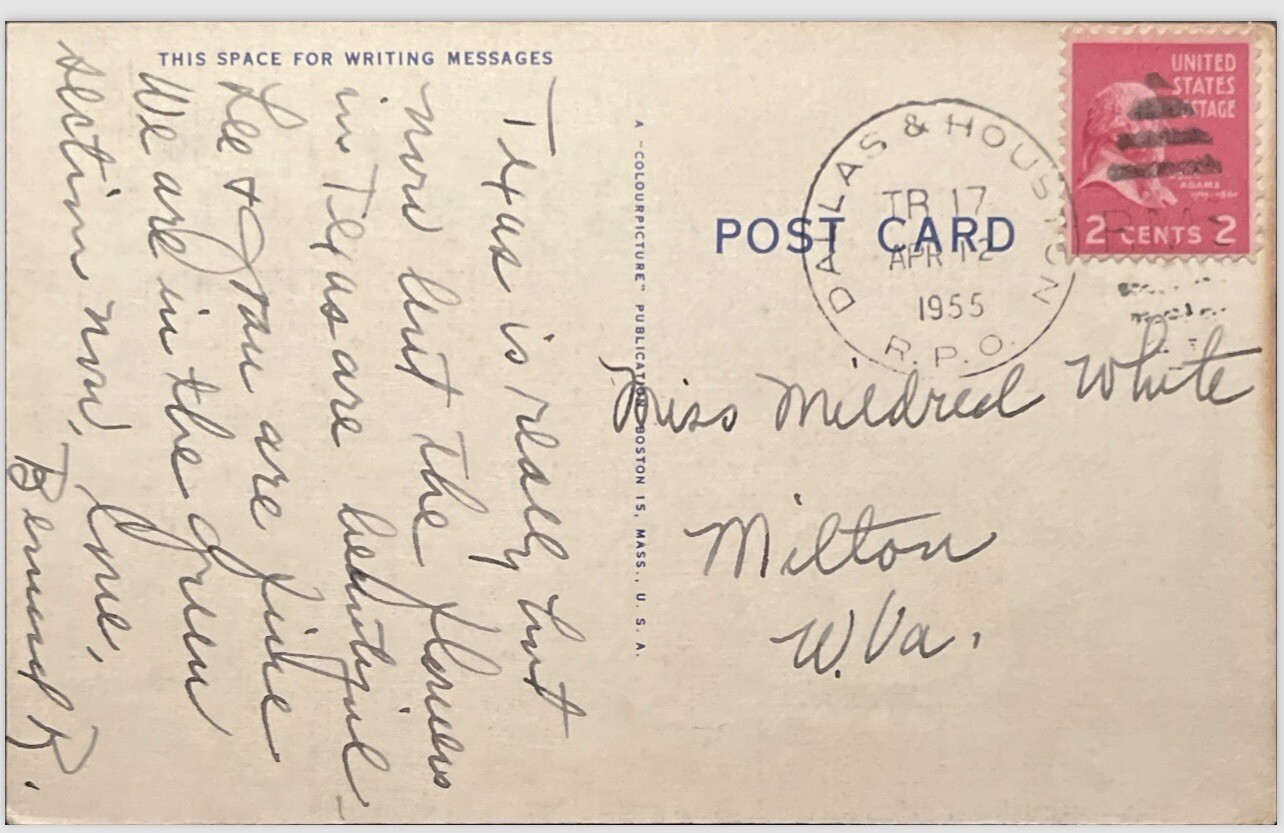 THIS SPACE FOR WRITING MESSAGES
Texas is really hot
now but the flowers
in Texas are beautiful -
Lee + Fran are fine
We are in the green
section now. Love,
R.
A "COLOURPICTURE" PUBLICATION BOSTON 15, MASS., U. S. A.
POST CARD
DALLAS & HOUSTON
TR 17
APR 12
1955
R.P.O.
UNITED
STATES
POSTAGE
ADAMS
2 CENTS 2
RMS
Miss Mildred White
Milton
W. Va.